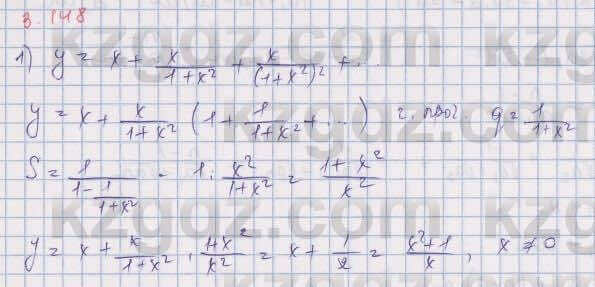 3.148
1) y = x + x/(1+x²) + x/(1+x²)² + ...
y = x + x/(1+x²) (1 + 1/(1+x²) + ...) г. прог. q = 1/(1+x²)
S = 1/(1 - 1/(1+x²)) = 1 : x²/(1+x²) = (1+x²)/x²
y = x + x/(1+x²) · (1+x²)/x² = x + 1/x = (x²+1)/x, x ≠ 0
kzgdz.com
kzgdz.com
kzgdz.com
kzgdz.com